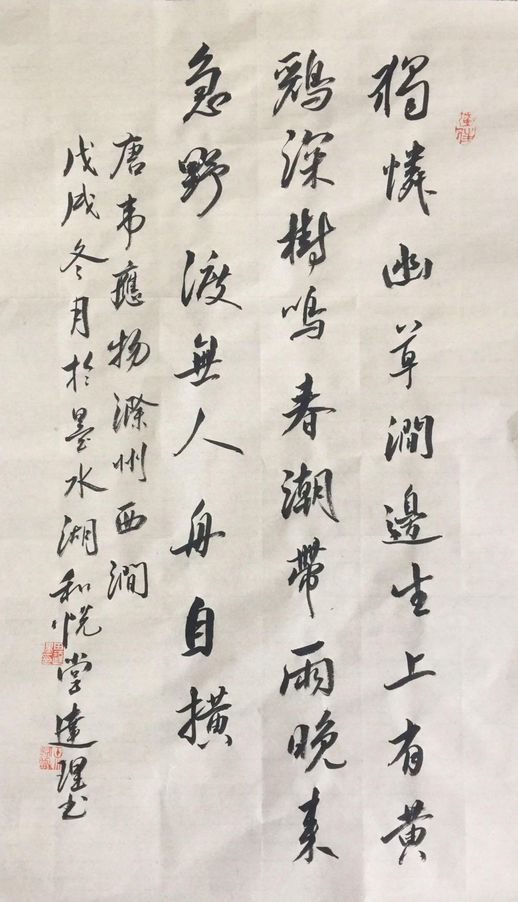 獨憐幽草澗邊生上有黃
鸝深樹鳴春潮帶雨晚來
急野渡無人舟自橫
唐韦應物滁州西澗
戊戌冬月於墨水湖和悦堂達理书